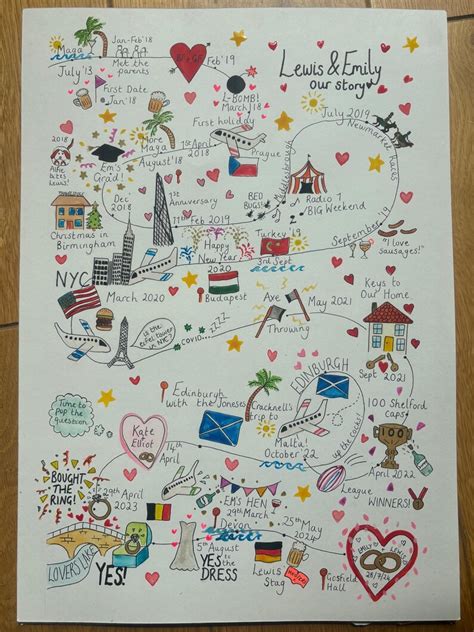 Lewis & Emily
our story
Maga
July '13
Jan-Feb '18
Met the
parents
Feb '19
First Date
Jan '18
L-BOMB!
March '18
July 2019
Newmarket Races
First holiday
1st April
2018
Prague
2018
More
Maga
August '18
Em's
Grad!
Dec
2018
Christmas in
Birmingham
1st
Anniversary
11th Feb 2019
BED
BUGS!
Middlesbrough
Radio 1
BIG Weekend
September '19
"I love
sausages!"
Turkey '19
3rd Sept
Happy
New Year
2020
Budapest
NYC
March 2020
is the
eiffel tower
in NYC
COVID...zzzz
Axe
Throwing
May 2021
Keys to
Our Home
Sept 2021
EDINBURGH
Edinburgh
with the Joneses
Cracknell's
trip to
Malta!
October '22
up the cocks!
100 Shelford
caps!
100
April 2022
League
WINNERS!
Time to
Pop the
question
Kate
Elliot
14th
April
BOUGHT
THE
RING!
29th April
2023
EM'S HEN
29th March
Devon
25th May
2024
LOVERS LAKE
YES!
5th August
YES to
the
DRESS
Lewis
Stag
Gosfield
Hall
EMILY
LEWIS
28/7/24